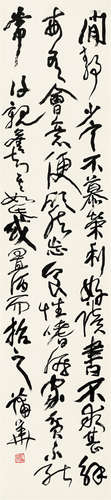 閒靜少言不慕榮利好讀書不求甚解
每有會意便欣然忘食性嗜酒家貧不能
常得親舊知其如此或置酒而招之 蒲華